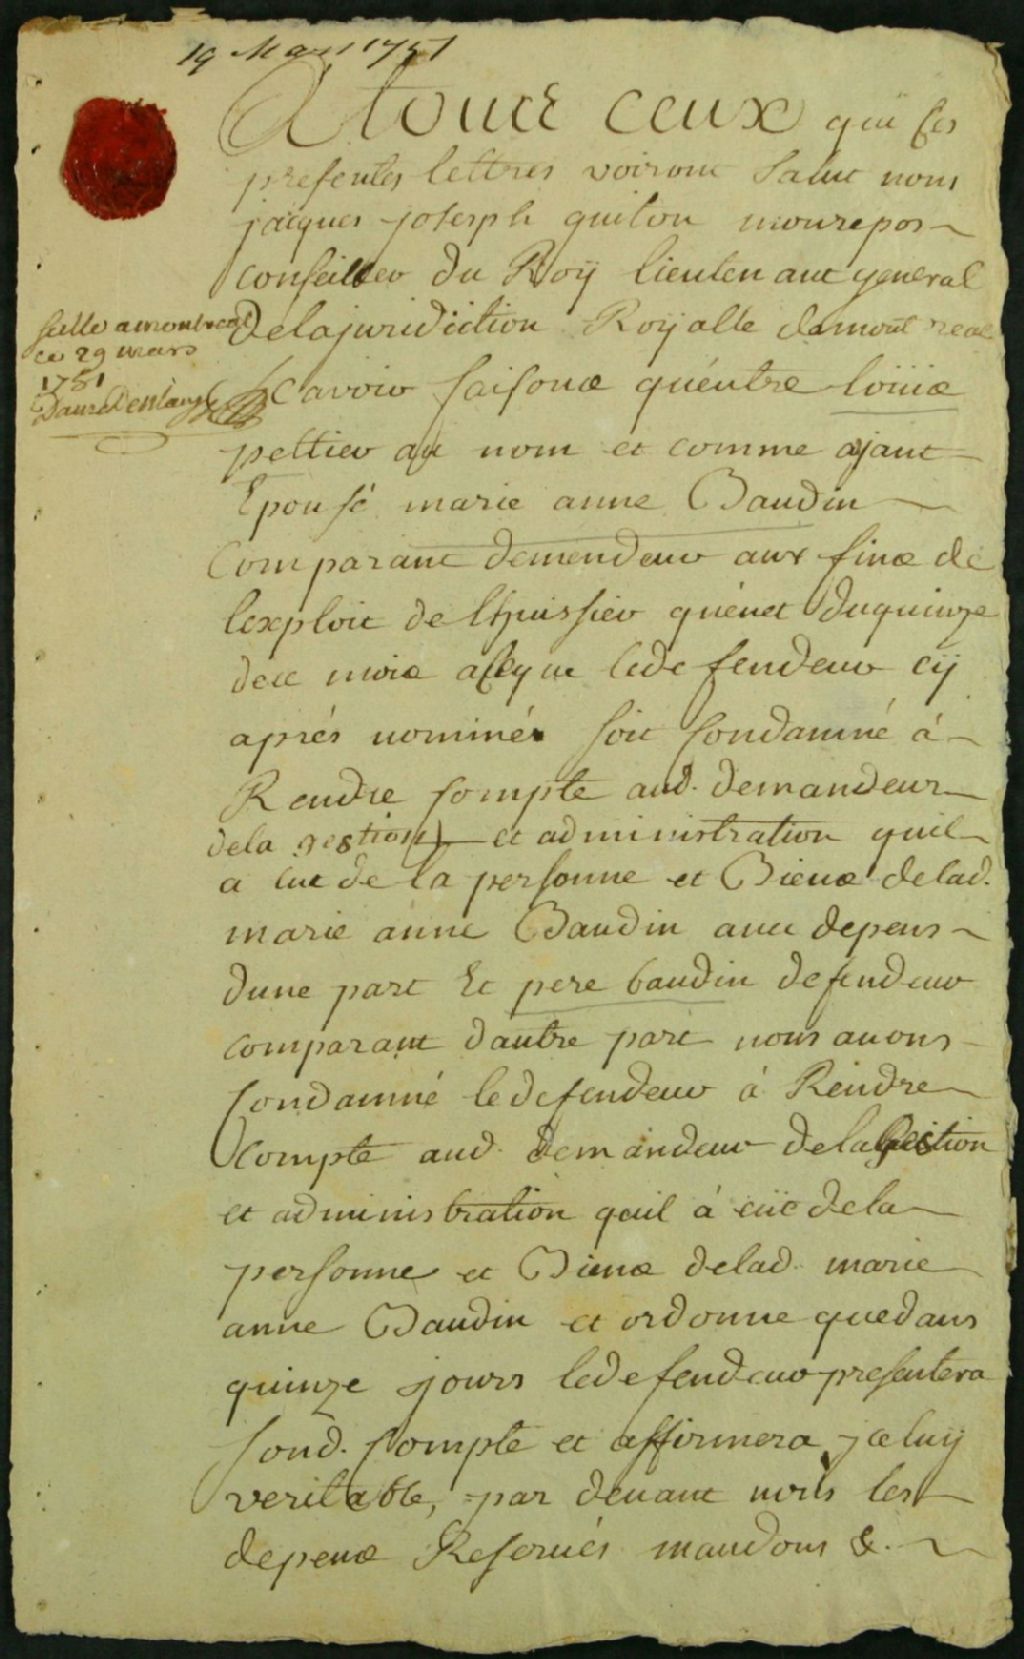 19 Mars 1751
A tous ceux qui ces
presentes lettres voiront Salut nous
jacques joseph guiton monrepos
conseiller du Roÿ lieutenant general
delajuridiction Royalle demontreal
scelle a montreal
ce 29 mars
1751
Danré De blanzy
Scavoir faisons quéntre loüis
peltier au nom et comme ajant
Epousé marie anne Baudin
Comparant demendeur aux fins de
lexploit de lhuissier quénet duquinze
dece mois aceque ledefendeur cÿ
aprés nommé soit Condamné á
Rendre Compte aud. demandeur
dela gestion et administration quil
a Eue de la personne et Biens delad.
marie anne Baudin avec depens
dune part Et pere baudin defendeur
comparant dautre part nous avons
Condamné ledefendeur á Rendre
Compte aud. demandeur delaGestion
et administration quil á eüe dela
personne et Biens delad. marie
anne Baudin et ordonne quedans
quinze jours ledefendeur presentera
Sond. Compte et affirmera jceluy
veritable, par devant nous les
depens Reservés mandons &.